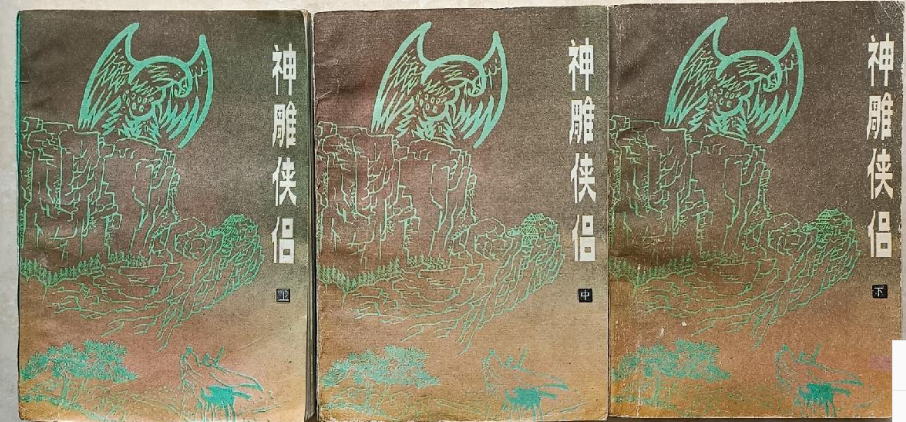 神雕侠侣
上
神雕侠侣
中
神雕侠侣
下